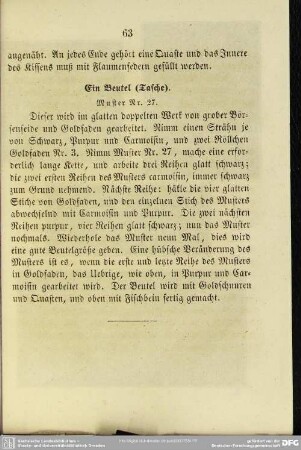 63
angenäht. An jedes Ende gehört eine Quaste und das Innere
des Kissens muß mit Flaumenfedern gefüllt werden.
Ein Beutel (Tasche).
Muster Nr. 27.
Dieser wird im glatten doppelten Werk von grober Bör-
senseide und Goldfaden gearbeitet. Nimm einen Strähn je
von Schwarz, Purpur und Carmoisin, und zwei Röllchen
Goldfaden Nr. 3. Nimm Muster Nr. 27, mache eine erfor-
derlich lange Kette, und arbeite drei Reihen glatt schwarz;
die zwei ersten Reihen des Musters carmoisin, immer schwarz
zum Grund nehmend. Nächste Reihe: häkle die vier glatten
Stiche von Goldfaden, und den einzelnen Stich des Musters
abwechselnd mit Carmoisin und Purpur. Die zwei nächsten
Reihen purpur, vier Reihen glatt schwarz; nun das Muster
nochmals. Wiederhole das Muster neun Mal, dies wird
eine gute Beutelgröße geben. Eine hübsche Veränderung des
Musters ist es, wenn die erste und letzte Reihe des Musters
in Goldfaden, das Uebrige, wie oben, in Purpur und Car-
moisin gearbeitet wird. Der Beutel wird mit Goldschnuren
und Quasten, und oben mit Fischbein fertig gemacht.
DFG